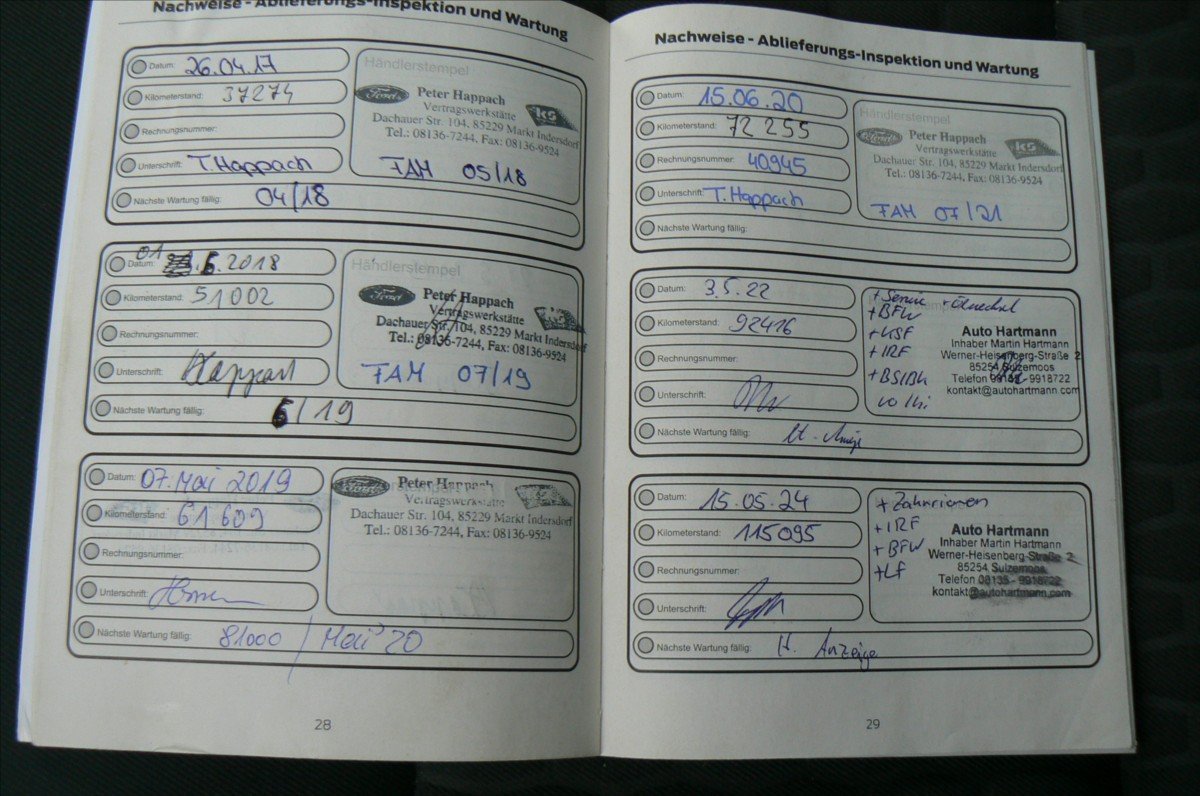 Nachweise - Ablieferungs-Inspektion und Wartung
Datum: 26.04.17
Kilometerstand: 37274
Rechnungsnummer:
Unterschrift: T. Happach
Nächste Wartung fällig: 04/18
Händlerstempel
Ford Peter Happach
Vertragswerkstätte
Dachauer Str. 104, 85229 Markt Indersdorf
Tel.: 08136-7244, Fax: 08136-9524
FAM 05/18
Datum: 01.6.2018
Kilometerstand: 51002
Rechnungsnummer:
Unterschrift: Happach
Nächste Wartung fällig: 6/19
Händlerstempel
Ford Peter Happach
Vertragswerkstätte
Dachauer Str. 104, 85229 Markt Indersdorf
Tel.: 08136-7244, Fax: 08136-9524
FAM 07/19
Datum: 07. Mai 2019
Kilometerstand: 61609
Rechnungsnummer:
Unterschrift:
Nächste Wartung fällig: 81000 / Mai 20
Ford Peter Happach
Vertragswerkstätte
Dachauer Str. 104, 85229 Markt Indersdorf
Tel.: 08136-7244, Fax: 08136-9524
28
Nachweise - Ablieferungs-Inspektion und Wartung
Datum: 15.06.20
Kilometerstand: 72255
Rechnungsnummer: 40945
Unterschrift: T. Happach
Nächste Wartung fällig:
Händlerstempel
Ford Peter Happach KS
Vertragswerkstätte
Dachauer Str. 104, 85229 Markt Indersdorf
Tel.: 08136-7244, Fax: 08136-9524
FAM 07/21
Datum: 3.5.22
Kilometerstand: 92416
Rechnungsnummer:
Unterschrift:
Nächste Wartung fällig: lt.
+ Service + Ölwechsel
+ BFW
+ KSF
+ IRF
+ BSIBh
Auto Hartmann
Inhaber Martin Hartmann
Werner-Heisenberg-Straße 2
85254 Sulzemoos
Telefon 08135 - 9918722
kontakt@autohartmann.com
Datum: 15.05.24
Kilometerstand: 115095
Rechnungsnummer:
Unterschrift:
Nächste Wartung fällig: lt. Anzeige
+ Zahnriemen
+ IRF
+ BFW
+ LF
Auto Hartmann
Inhaber Martin Hartmann
Werner-Heisenberg-Straße 2
85254 Sulzemoos
Telefon 08135 - 9918722
kontakt@autohartmann.com
29